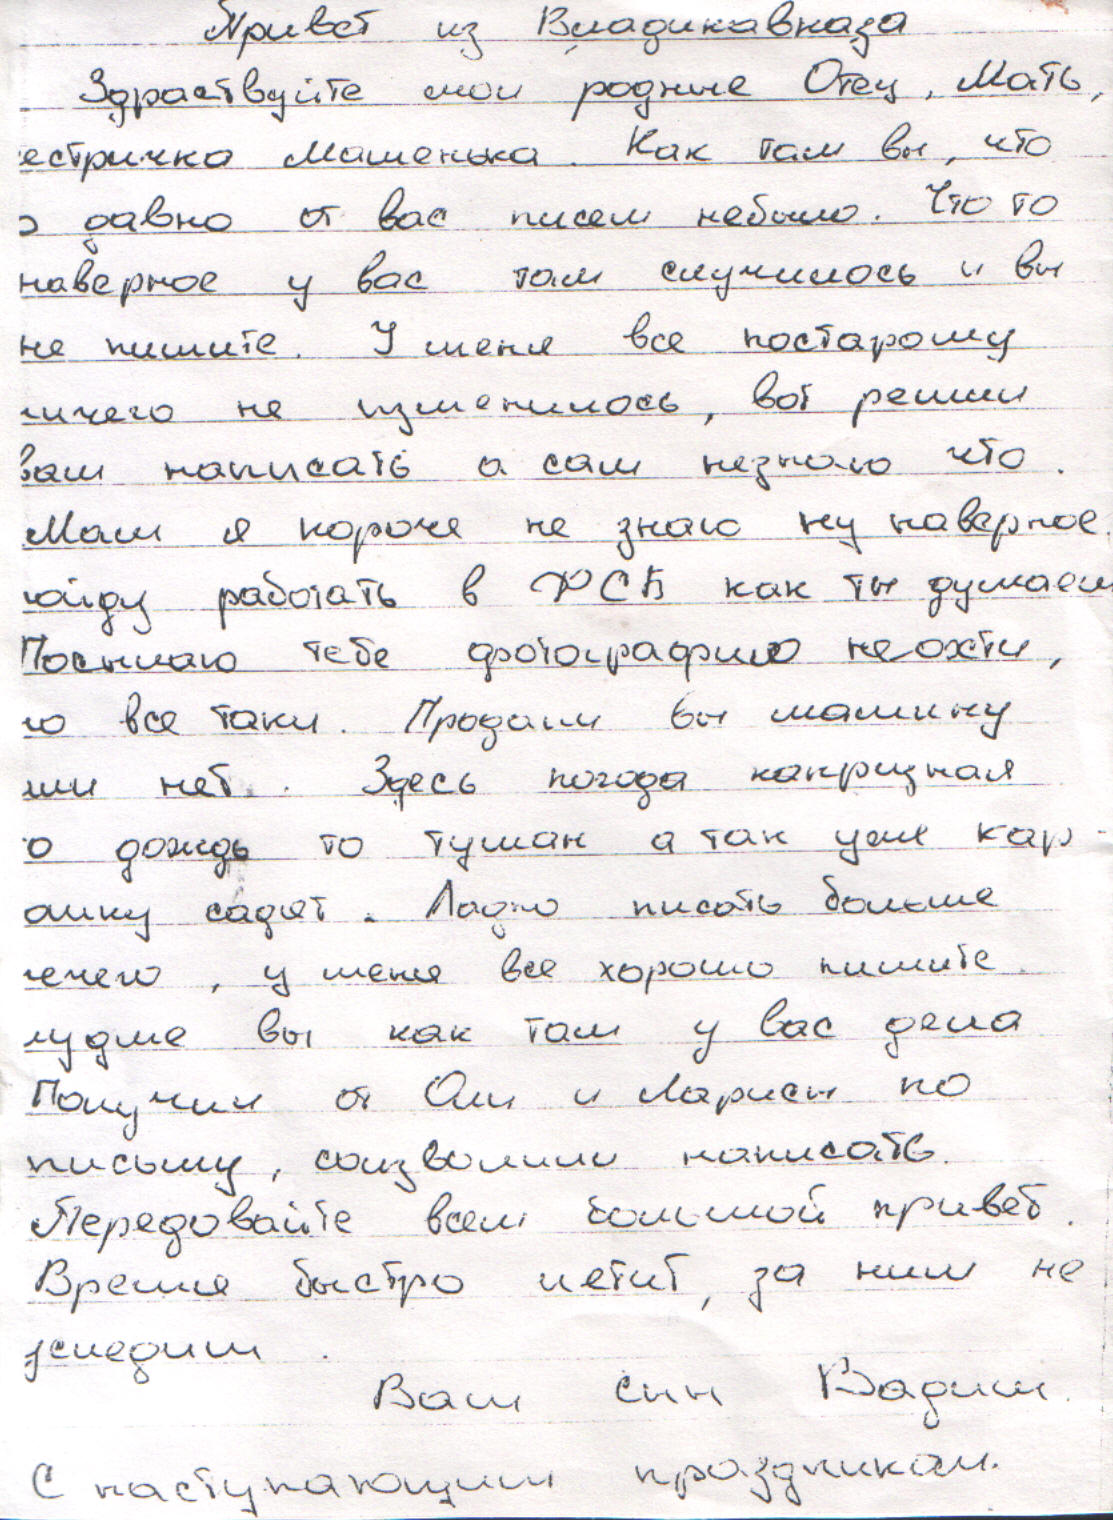 Привет из Владикавказа
Здраствуйте мои родные Отец, Мать,
естричка Машенька. Как там вы, что
о давно от вас писем небыло. Что то
наверное у вас там случилось и вы
не пишите. У меня все постарому
ничего не изменилось, вот решил
вам написать а сам незнаю что.
Мам я короче не знаю ну наверное
пойду работать в ФСБ как ты думаеш
Посылаю тебе фотографию неахти,
но все таки. Продали вы машину
или нет. Здесь погода капризная
о дождь то туман а так уже кар-
ошку садят. Ладно писать больше
нечего, у меня все хорошо пишите.
лудше вы как там у вас дела
Получил от Оли и Ларисы по
письму, соизволили написать.
Передовайте всем большой привет.
Время быстро летит, за ним не
уследиш.
Ваш сын Вадим.
С наступающим праздником.